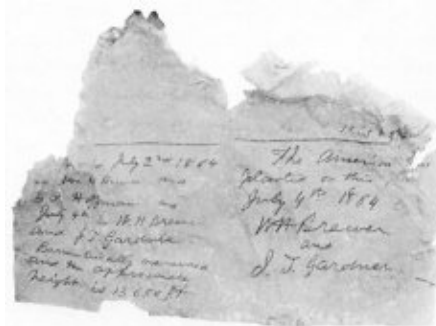 July 2nd 1864
and
C F Hoffman
July 4th W H Brewer
and J T Gardner
Barometrically measured
and the approximate
height is 13,650 ft
The American
planted on this
July 4th 1864
W H Brewer
and
J. T. Gardner